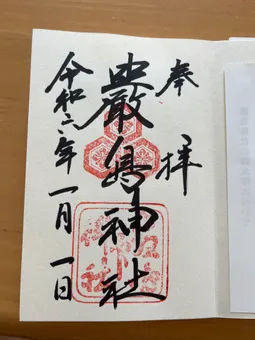 奉拝
厳島神社
令和六年一月一日